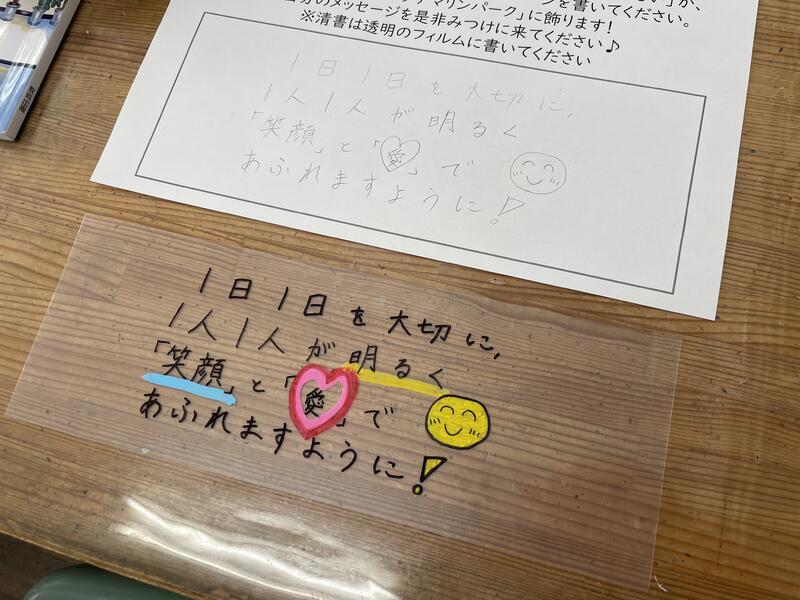 を書いてください。
マリンパーク」に飾ります!
のメッセージを是非みつけに来てください♪
※清書は透明のフィルムに書いてください
1日1日を大切に,
1人1人が明るく
「笑顔」と「愛」で
あふれますように!
1日1日を大切に,
1人1人が明るく
「笑顔」と「愛」で
あふれますように!